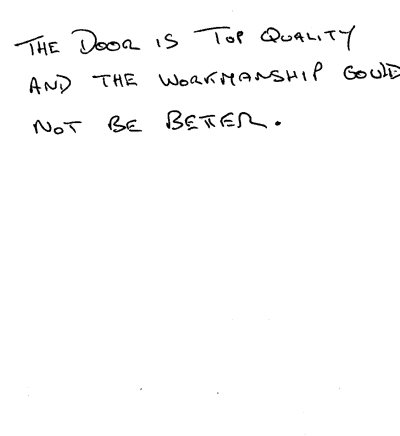 THE DOOR IS TOP QUALITY
AND THE WORKMANSHIP COULD
NOT BE BETTER.